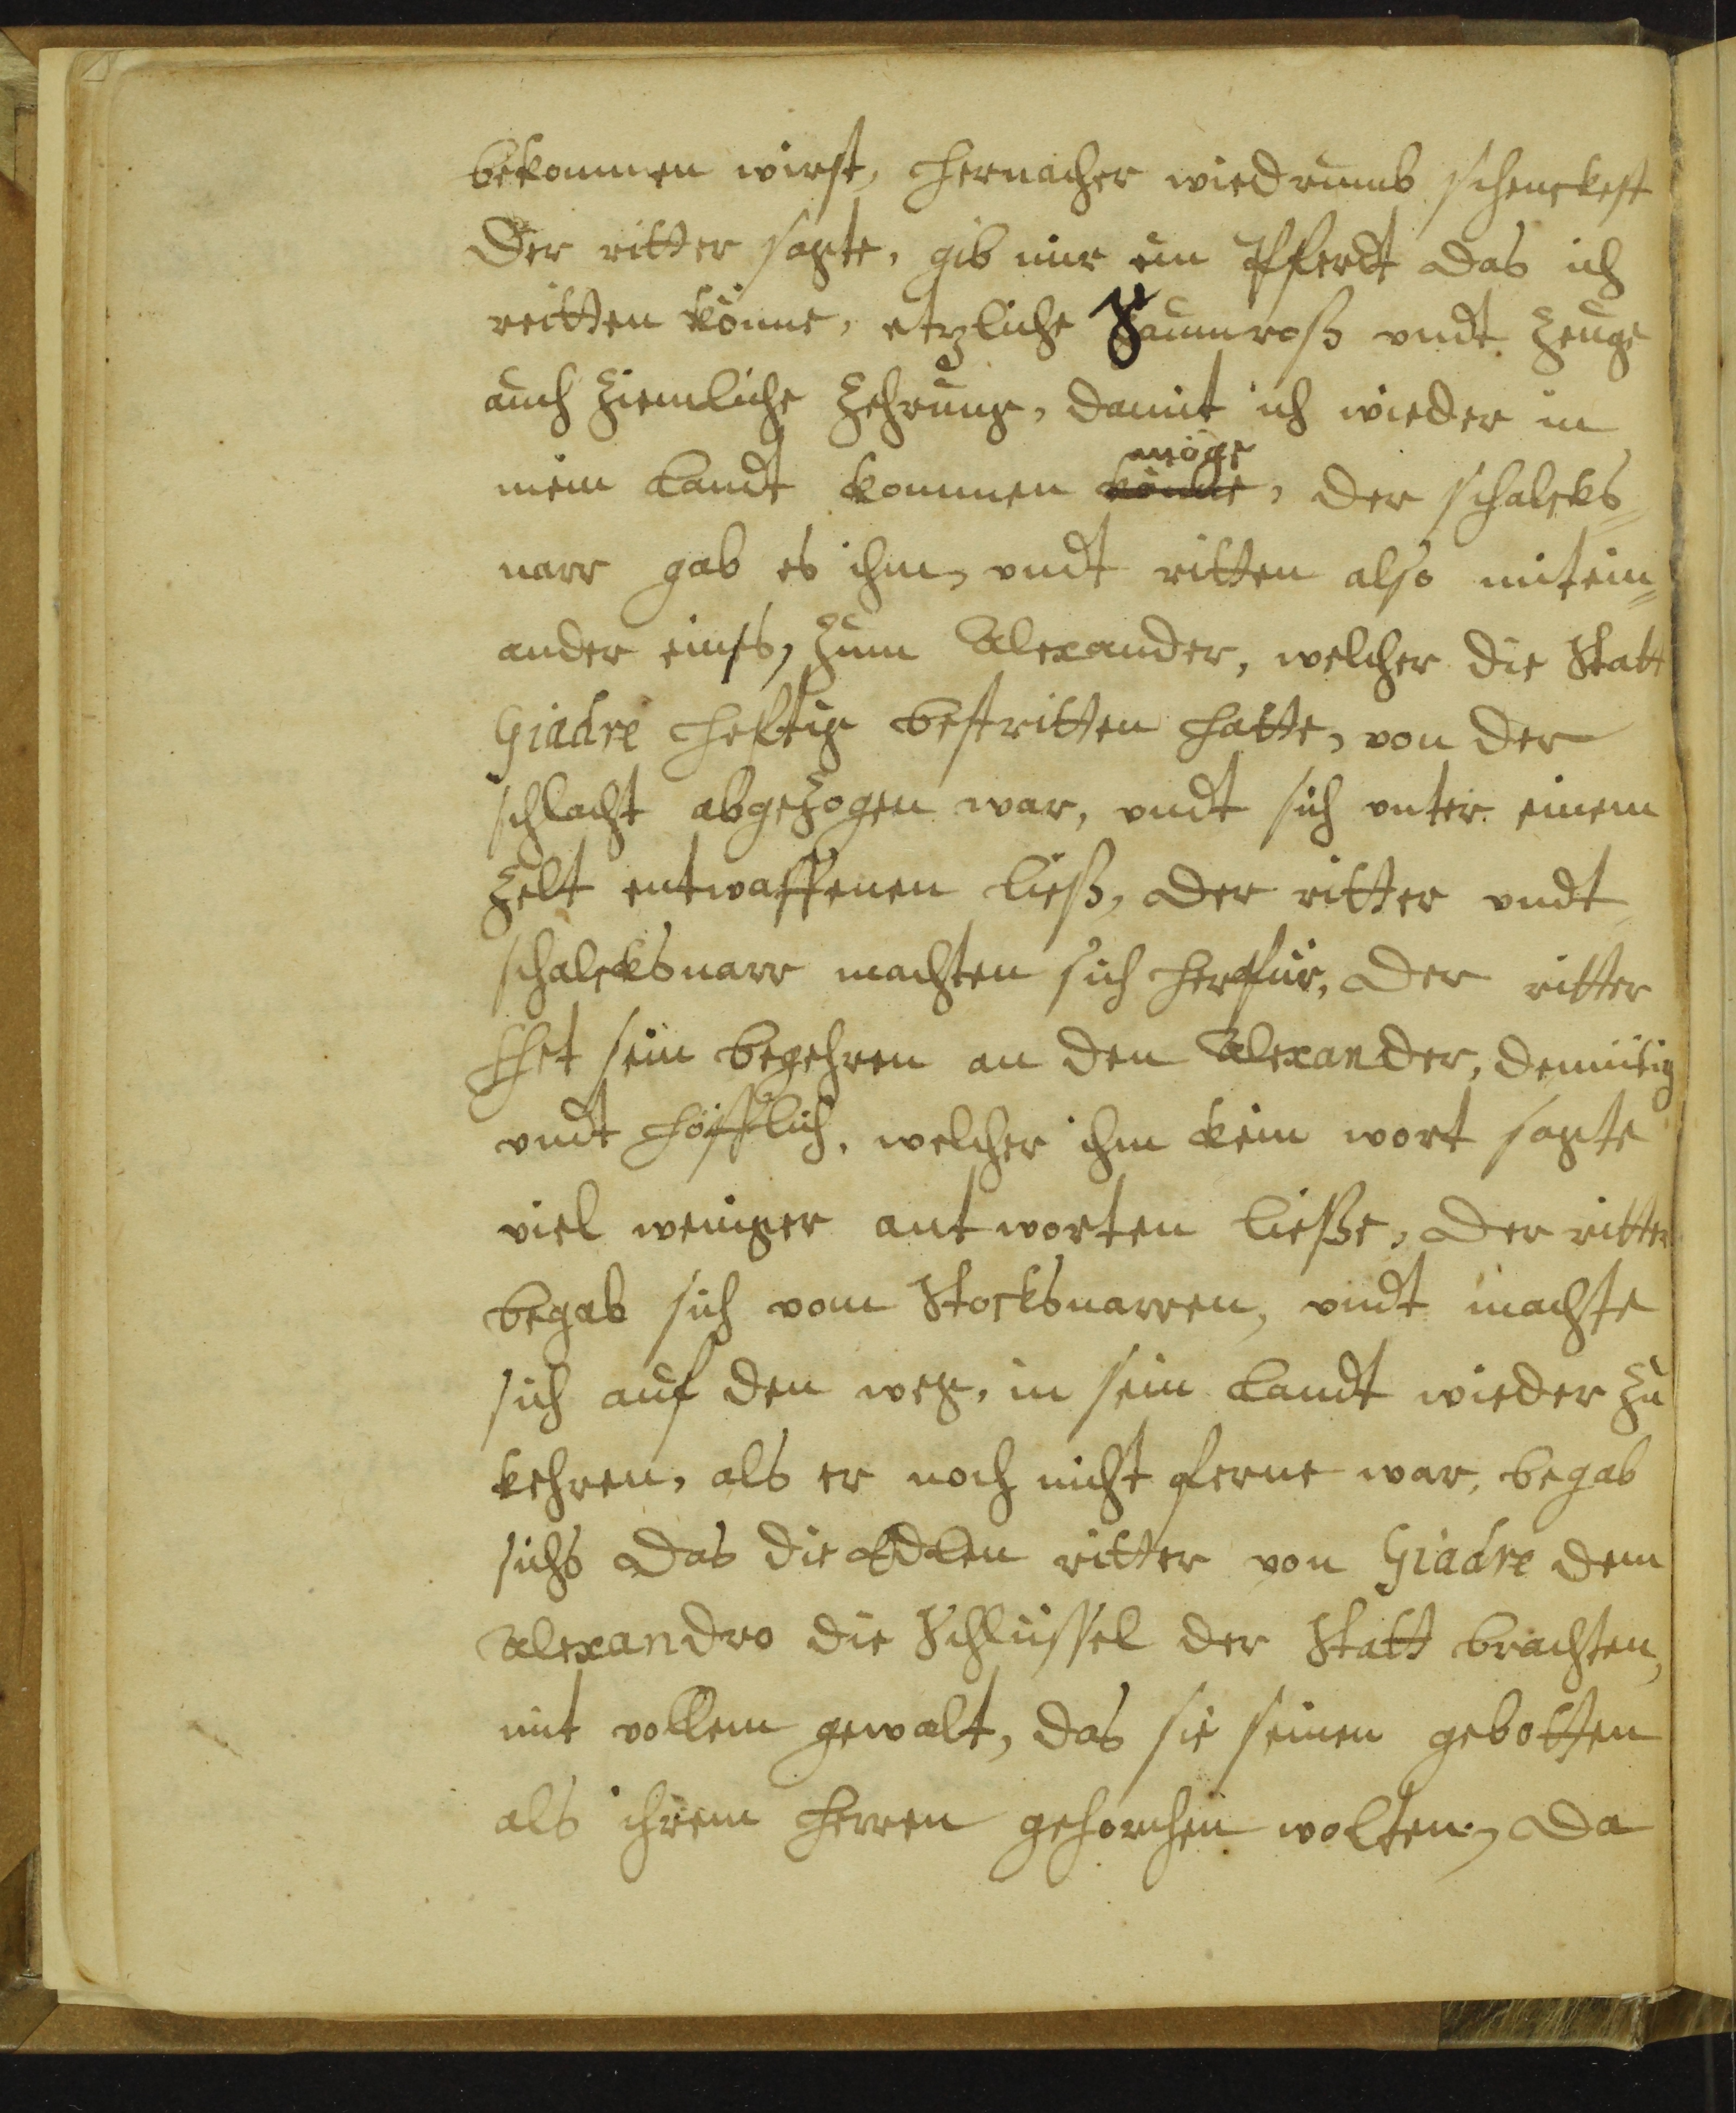 bekommen wirst, hernacher wiedrumb schenckest
Der ritter sagte, gib mir ein Pferdt das ich
reitten könne, etzliche Saumroß undt zeuge
auch ziemliche zehrung, damit ich wieder in
möge
mein Landt kommen könne, der schalcks¬
narr gab es ihm, undt ritten also mitein¬
ander einß, zum Alexander, welcher die Statt
Giadre hefftig bestritten hatte, von der
schlacht abgezogen war, undt sich unter einem
zelt entwaffenen ließ, der ritter undt
schalcksnarr machten sich herfür, der ritter
thet sein begehren an den Alexander, demütig
undt höfflich, welcher ihm kein wort sagte
viel weniger antworten ließe, der ritter
begab sich vom Stocksnarren, undt machte
sich auf den weg, in sein Landt wieder zu
kehren, als er noch nicht ferne war, begab
sichs das die Edlen ritter von Giadre dem
Alexandro die Schlüssel der Statt brachten,
mit vollem gewalt, das sie seinen gebotten
als ihrem Herren gehorchen wolten, da